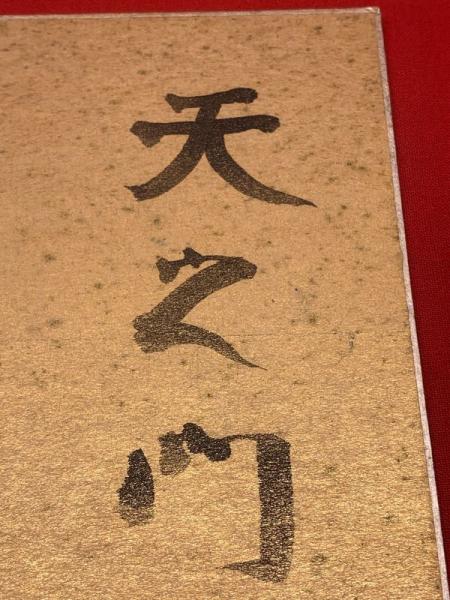 天之門